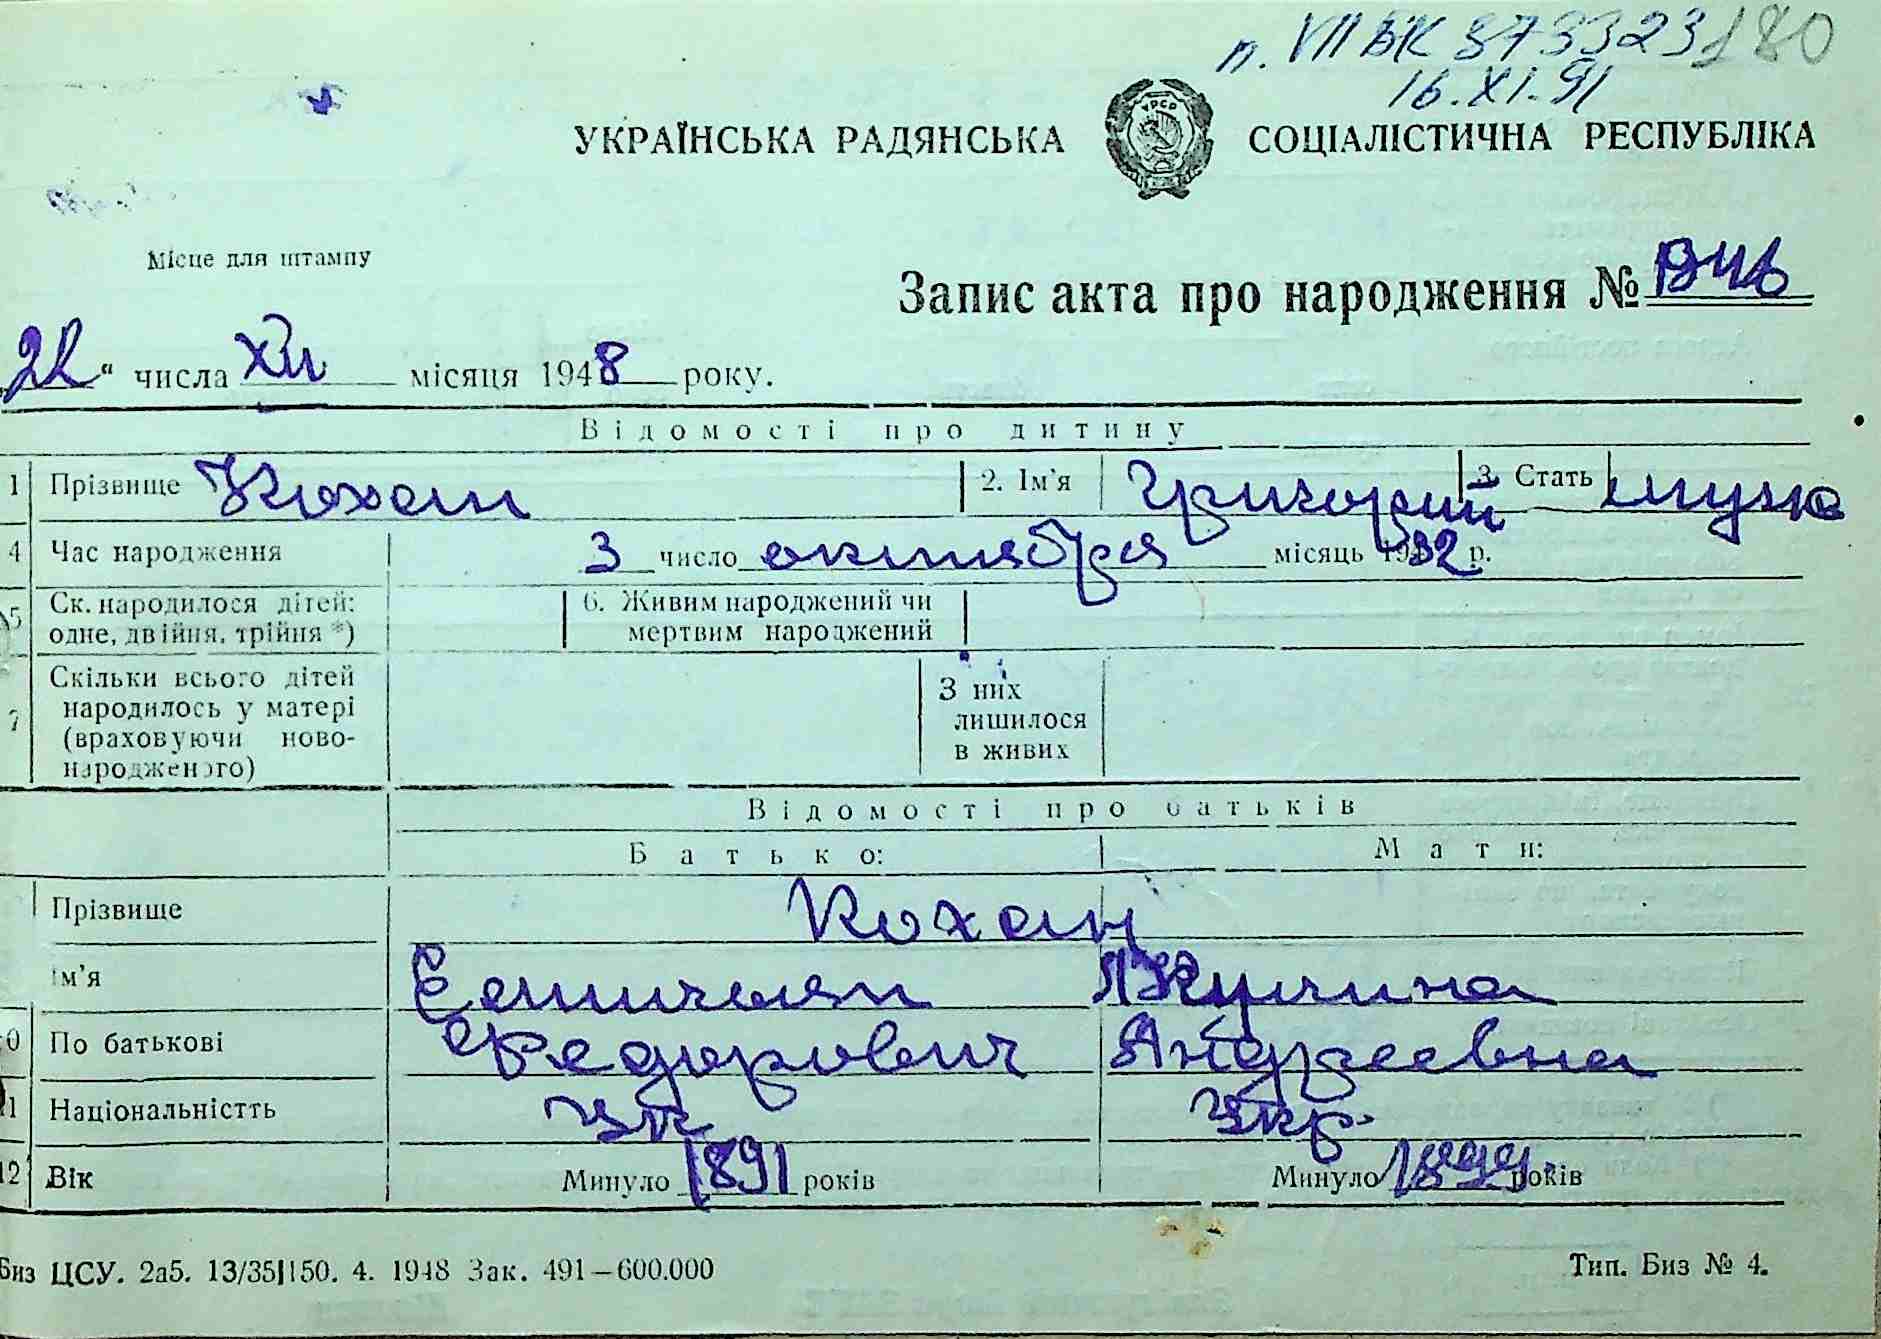 п. VII БК 373323 180
16.XI.91
УКРАЇНСЬКА РАДЯНСЬКА СОЦІАЛІСТИЧНА РЕСПУБЛІКА
УРСР
Місце для штампу
Запис акта про народження №
„22“ числа XII місяця 1948 року.
Відомості про дитину
1 Прізвище Кохан 2. Ім'я Григорий 3. Стать муж
4 Час народження 3 число октября місяць 1932 р.
5 Ск. народилося дітей: 6. Живим народжений чи
одне, двійня, трійня *) мертвим народжений
7 Скільки всього дітей З них
народилось у матері лишилося
(враховуючи ново- в живих
народженого)
Відомості про батьків
Батько: Мати:
Прізвище Кохан
Ім'я
0 По батькові Федорович Андреевна
1 Національністть Ук Укр.
12 Вік Минуло 1891 років Минуло 1899 років
Биз ЦСУ. 2а5. 13/35|150. 4. 1948 Зак. 491–600.000 Тип. Биз № 4.